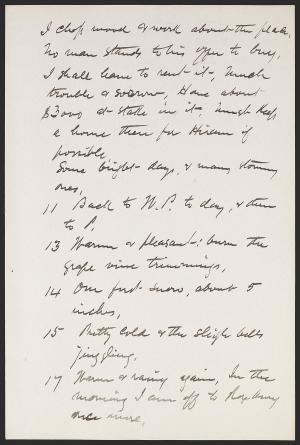 I chop wood & work about the place.
No man stands to his offer to buy,
I shall have to rent it. Much
trouble & sorrow, Have about
$3000 at stake in it, Must keep
a home there for Hiram if
possible.
Some bright days, & many stormy
ones,
11 Back to W.P. to day, & then
to P.
13 Warm & pleasant; burn the
grape vine trimmings,
14 Our first snow, about 5
inches,
15 Pretty cold & the sleigh bells
jingling,
17 Warm & rainy again, In the
morning I am off to Roxbury
once more,